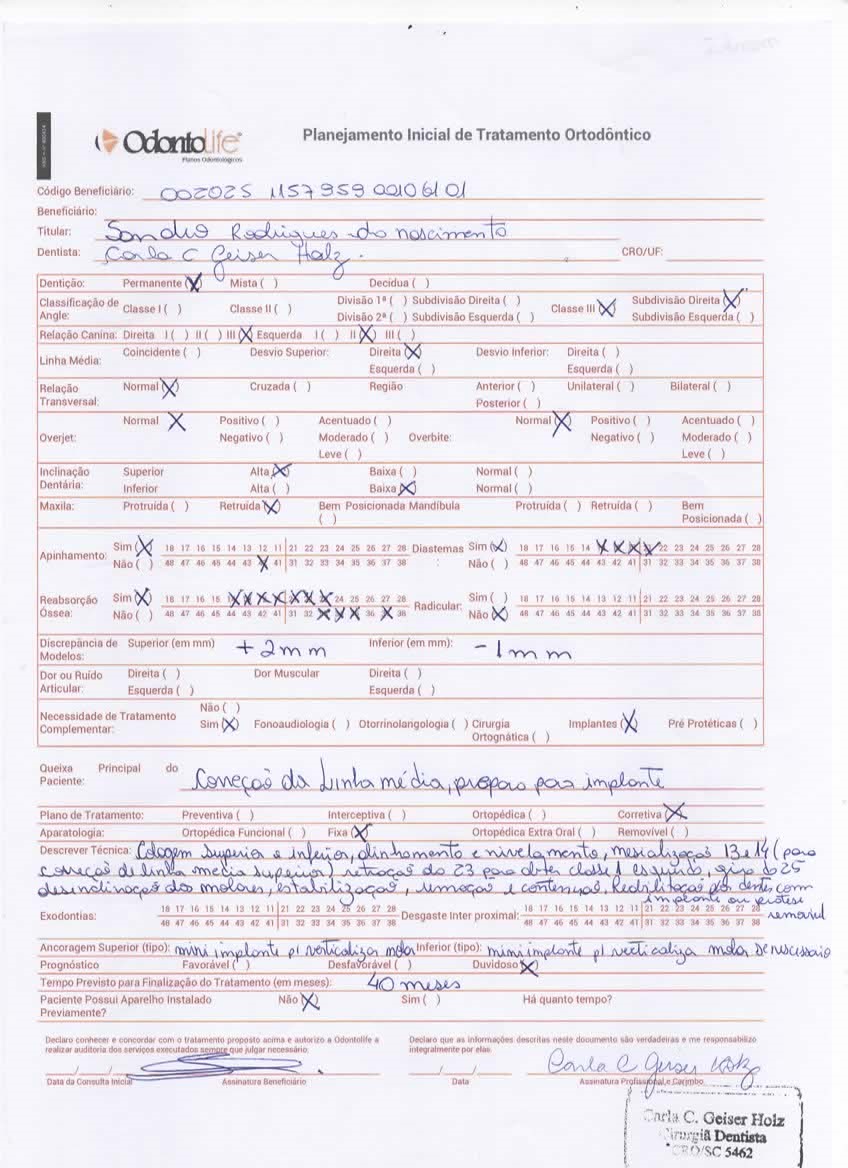 OdontoLife
Planos Odontológicos
Planejamento Inicial de Tratamento Ortodôntico
Código Beneficiário: 002025 1157959 00106101
Beneficiário:
Titular: Sandro Rodrigues do nascimento
Dentista: Carla C Geiser Holz. CRO/UF:
Dentição: Permanente (X) Mista ( ) Decídua ( )
Classificação de Angle: Classe I ( ) Classe II ( ) Divisão 1ª ( ) Subdivisão Direita ( ) Classe III (X) Subdivisão Direita (X)
Divisão 2ª ( ) Subdivisão Esquerda ( ) Subdivisão Esquerda ( )
Relação Canina: Direita I ( ) II ( ) III (X) Esquerda I ( ) II (X) III ( )
Linha Média: Coincidente ( ) Desvio Superior: Direita (X) Desvio Inferior: Direita ( )
Esquerda ( ) Esquerda ( )
Relação Transversal: Normal (X) Cruzada ( ) Região Anterior ( ) Unilateral ( ) Bilateral ( )
Posterior ( )
Normal X Positivo ( ) Acentuado ( ) Normal (X) Positivo ( ) Acentuado ( )
Overjet: Negativo ( ) Moderado ( ) Overbite: Negativo ( ) Moderado ( )
Leve ( ) Leve ( )
Inclinação Dentária: Superior Alta (X) Baixa ( ) Normal ( )
Inferior Alta ( ) Baixa (X) Normal ( )
Maxila: Protruída ( ) Retruída (X) Bem Posicionada ( ) Mandíbula Protruída ( ) Retruída ( ) Bem Posicionada ( )
Apinhamento: Sim (X) 18 17 16 15 14 13 12 11 21 22 23 24 25 26 27 28 Diastemas: Sim (X) 18 17 16 15 14 X X X X 22 23 24 25 26 27 28
Não ( ) 48 47 46 45 44 43 X 41 31 32 33 34 35 36 37 38 Não ( ) 48 47 46 45 44 43 42 41 31 32 33 34 35 36 37 38
Reabsorção Óssea: Sim (X) 18 17 16 15 X X X X X X X 24 25 26 27 28 Radicular: Sim ( ) 18 17 16 15 14 13 12 11 21 22 23 24 25 26 27 28
Não ( ) 48 47 46 45 44 43 42 41 31 32 X X X 36 X 38 Não (X) 48 47 46 45 44 43 42 41 31 32 33 34 35 36 37 38
Discrepância de Modelos: Superior (em mm) +2mm Inferior (em mm): -1mm
Dor ou Ruído Articular: Direita ( ) Dor Muscular Direita ( )
Esquerda ( ) Esquerda ( )
Necessidade de Tratamento Complementar: Não ( )
Sim (X) Fonoaudiologia ( ) Otorrinolangologia ( ) Cirurgia Ortognática ( ) Implantes (X) Pré Protéticas ( )
Queixa Principal do Paciente: Correção da Linha média, preparo para implante
Plano de Tratamento: Preventiva ( ) Interceptiva ( ) Ortopédica ( ) Corretiva (X)
Aparatologia: Ortopédica Funcional ( ) Fixa (X) Ortopédica Extra Oral ( ) Removível ( )
Descrever Técnica: Colagem superior e inferior, alinhamento e nivelamento, mesialização 13 e 14 (para
correção de linha media superior) retração do 23 para obter classe I esquerdo, giro do 25
desinclinação dos molares, estabilização, remoção e contenção. Reabilitação dos dentes com
implante ou protese
removivel
Exodontias: 18 17 16 15 14 13 12 11 21 22 23 24 25 26 27 28 Desgaste Inter proximal: 18 17 16 15 14 13 12 11 21 22 23 24 25 26 27 28
48 47 46 45 44 43 42 41 31 32 33 34 35 36 37 38 48 47 46 45 44 43 42 41 31 32 33 34 35 36 37 38
Ancoragem Superior (tipo): mini implante p/ verticaliza molar Inferior (tipo): mini implante p/ verticaliza molar se necessario
Prognóstico Favorável ( ) Desfavorável ( ) Duvidoso (X)
Tempo Previsto para Finalização do Tratamento (em meses): 40 meses
Paciente Possui Aparelho Instalado Previamente? Não (X) Sim ( ) Há quanto tempo?
Declaro conhecer e concordar com o tratamento proposto acima e autorizo a Odontolife a
realizar auditoria dos serviços executados sempre que julgar necessário.
Declaro que as informações descritas neste documento são verdadeiras e me responsabilizo
integralmente por elas.
Carla C Geiser Holz
Data da Consulta Inicial Assinatura Beneficiário Data Assinatura Profissional e Carimbo
Carla C. Geiser Holz
Cirurgiã Dentista
CRO/SC 5462